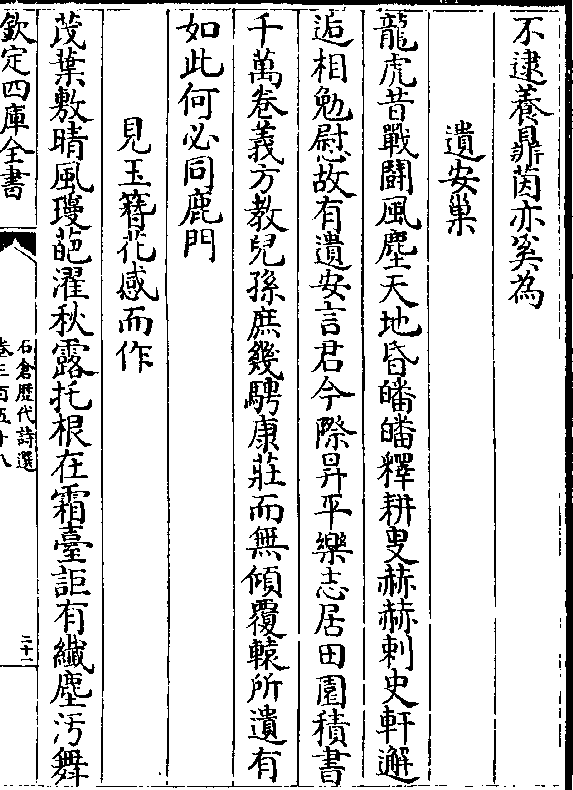 不逮養鼎茵亦奚為
遺安巢
龍虎昔戰鬭風塵天地昏皤皤釋耕叟赫赫刺史軒邂
逅相勉慰故有遺安言君今際昇平樂志居田園積書
千萬卷義方教兒孫庶幾騁康莊而無傾覆轅所遺有
如此何必同鹿門
見玉簪花感而作
茂葉敷晴風瓊葩濯秋露托根在霜臺詎有纖塵汚舞
欽定四庫全書
石倉歴代詩選
卷三百五十八
二十一